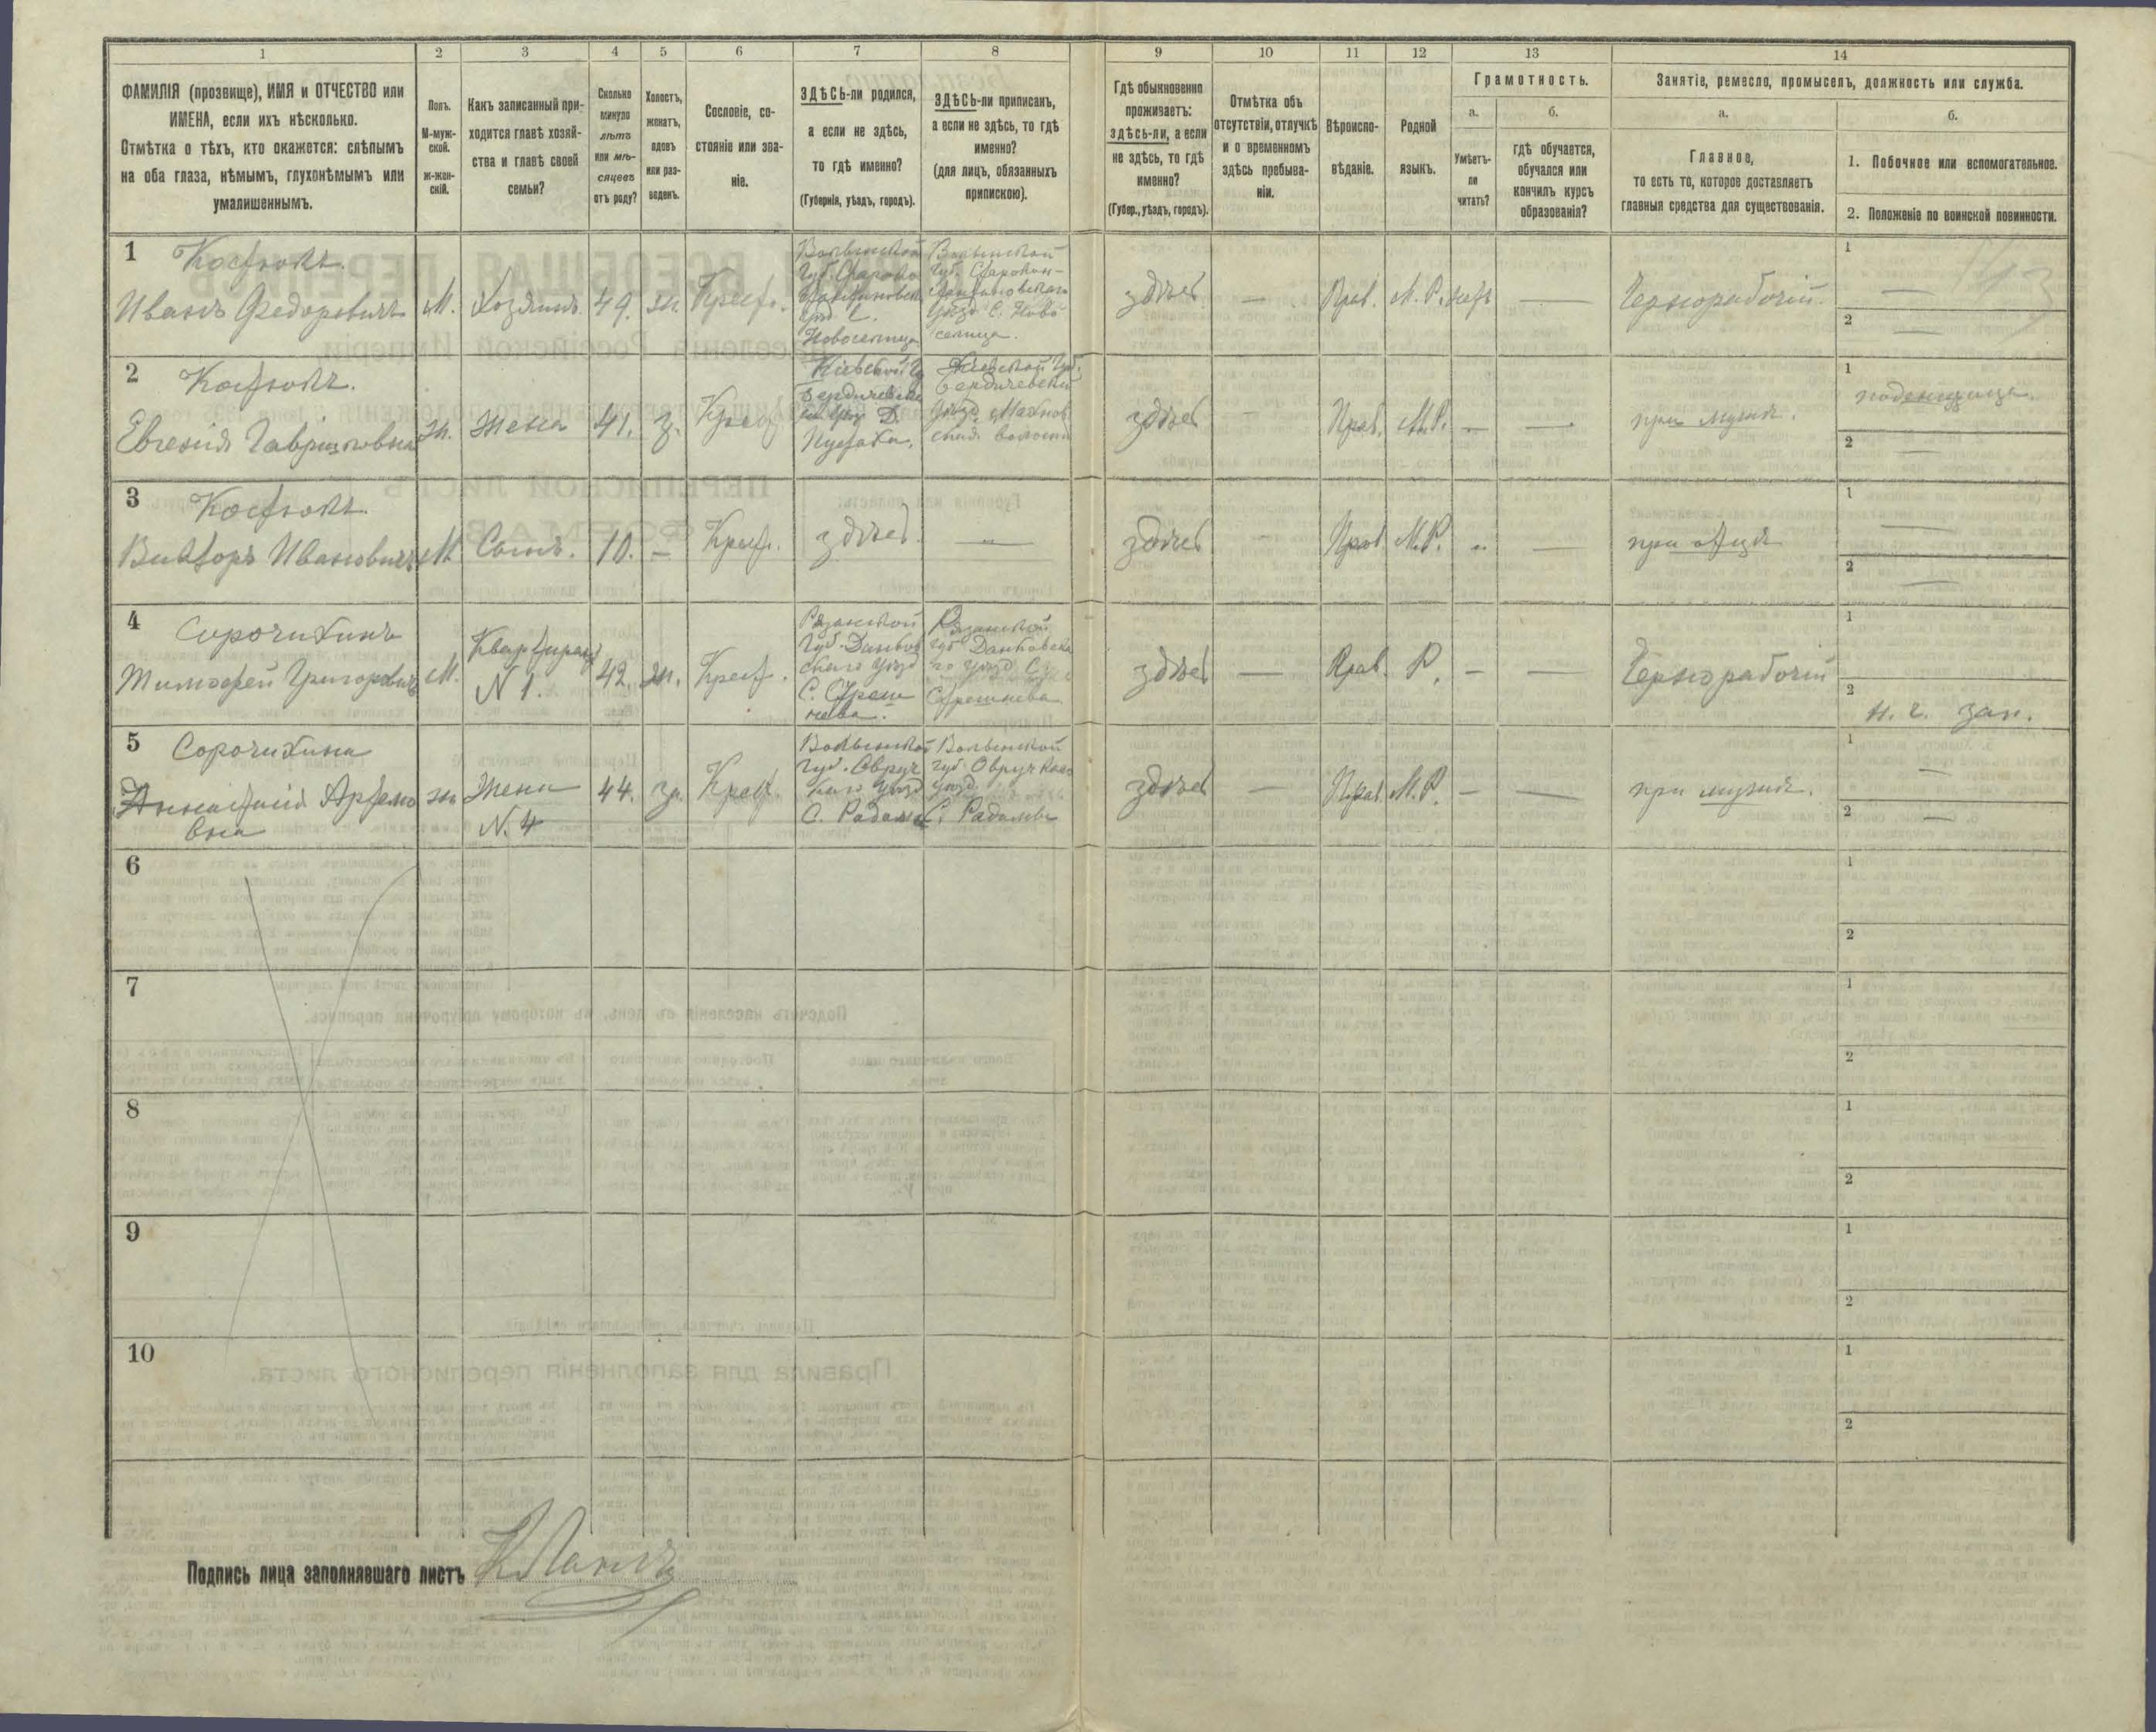 1
2
3
4
5
6
7
8
9
10
11
12
13
14
ФАМИЛІЯ (прозвище), ИМЯ и ОТЧЕСТВО или
ИМЕНА, если ихъ нѣсколько.
Отмѣтка о тѣхъ, кто окажется: слѣпымъ
на оба глаза, нѣмымъ, глухонѣмымъ или
умалишеннымъ.
Полъ.
М-муж-
ской.
Ж-жен-
скій.
Какъ записанный при-
ходится главѣ хозяй-
ства и главѣ своей
семьи?
Сколько
минуло
лѣтъ
или мѣ-
сяцевъ
отъ роду?
Холостъ,
женатъ,
вдовъ
или раз-
веденъ.
Сословіе, со-
стояніе или зва-
ніе.
ЗДѢСЬ-ли родился,
а если не здѣсь,
то гдѣ именно?
(Губернія, уѣздъ, городъ).
ЗДѢСЬ-ли приписанъ,
а если не здѣсь, то гдѣ
именно?
(для лицъ, обязанныхъ
припискою).
Гдѣ обыкновенно
проживаетъ:
здѣсь-ли, а если
не здѣсь, то гдѣ
именно?
(Губер., уѣздъ, городъ).
Отмѣтка объ
отсутствіи, отлучкѣ
и о временномъ
здѣсь пребыва-
ніи.
Вѣроиспо-
вѣданіе.
Родной
языкъ.
Грамотность.
а.
Умѣетъ-
ли
читать?
б.
гдѣ обучается,
обучался или
кончилъ курсъ
образованія?
Занятіе, ремесло, промыселъ, должность или служба.
а.
Главное,
то есть то, которое доставляетъ
главныя средства для существованія.
б.
1. Побочное или вспомогательное.
2. Положеніе по воинской повинности.
1
Костюкъ.
Иванъ Федоровичъ
М.
Хозяинъ
49.
ж.
Крест.
Волынской
Губ. Старокон
стантиновск
уѣзд. С.
Новоселица
Волынской
Губ. Старокон-
стантиновскаго
уѣзд. С. Ново
селица.
здѣсь
—
Прав.
М. Р.
нетъ
—
Чернорабочій.
1 —
2 —
2
Костюкъ.
Евгенія Гавриловна
Ж.
Жена
41.
З.
Крест.
Кіевской Гу
Бердичевска
го уѣзд Д.
Пустоха.
Кіевской Губ.
Бердичевскій
уѣзд. Махнов
ская волость
здѣсь
—
Прав.
М.Р.
—
—
при мужѣ.
1 поденщица.
2 —
3
Костюкъ.
Викторъ Ивановичъ
М
Сынъ.
10.
—
Крест.
здѣсь.
—
здѣсь
—
Прав
М.Р.
—
при отцѣ
1 —
2 —
4
Сорочихинъ
Тимофей Григорович
М.
Квартирант
N 1.
42.
ж.
Крест.
Рязанской
Губ. Данков
скаго уѣзд
С. Стреш
нева.
Рязанской
губ Данковска
го уѣзд С.
Стрешнева
здѣсь
—
Прав.
Р.
—
—
Чернорабочій
1
2
н. г. зап.
5
Сорочихина
Анастасія Артемо
вна
ж.
Жена
N. 4
44.
з.
Крест.
Волынской
губ. Овруч
скаго уѣзд
С. Радомъ
Волынской
губ Овручскаго
уѣзд.
С. Радомъ
здѣсь
—
Прав.
М.Р.
—
—
при мужѣ.
1 —
2 —
6
1
2
7
1
2
8
1
2
9
1
2
10
1
2
Подпись лица заполнявшаго листъ